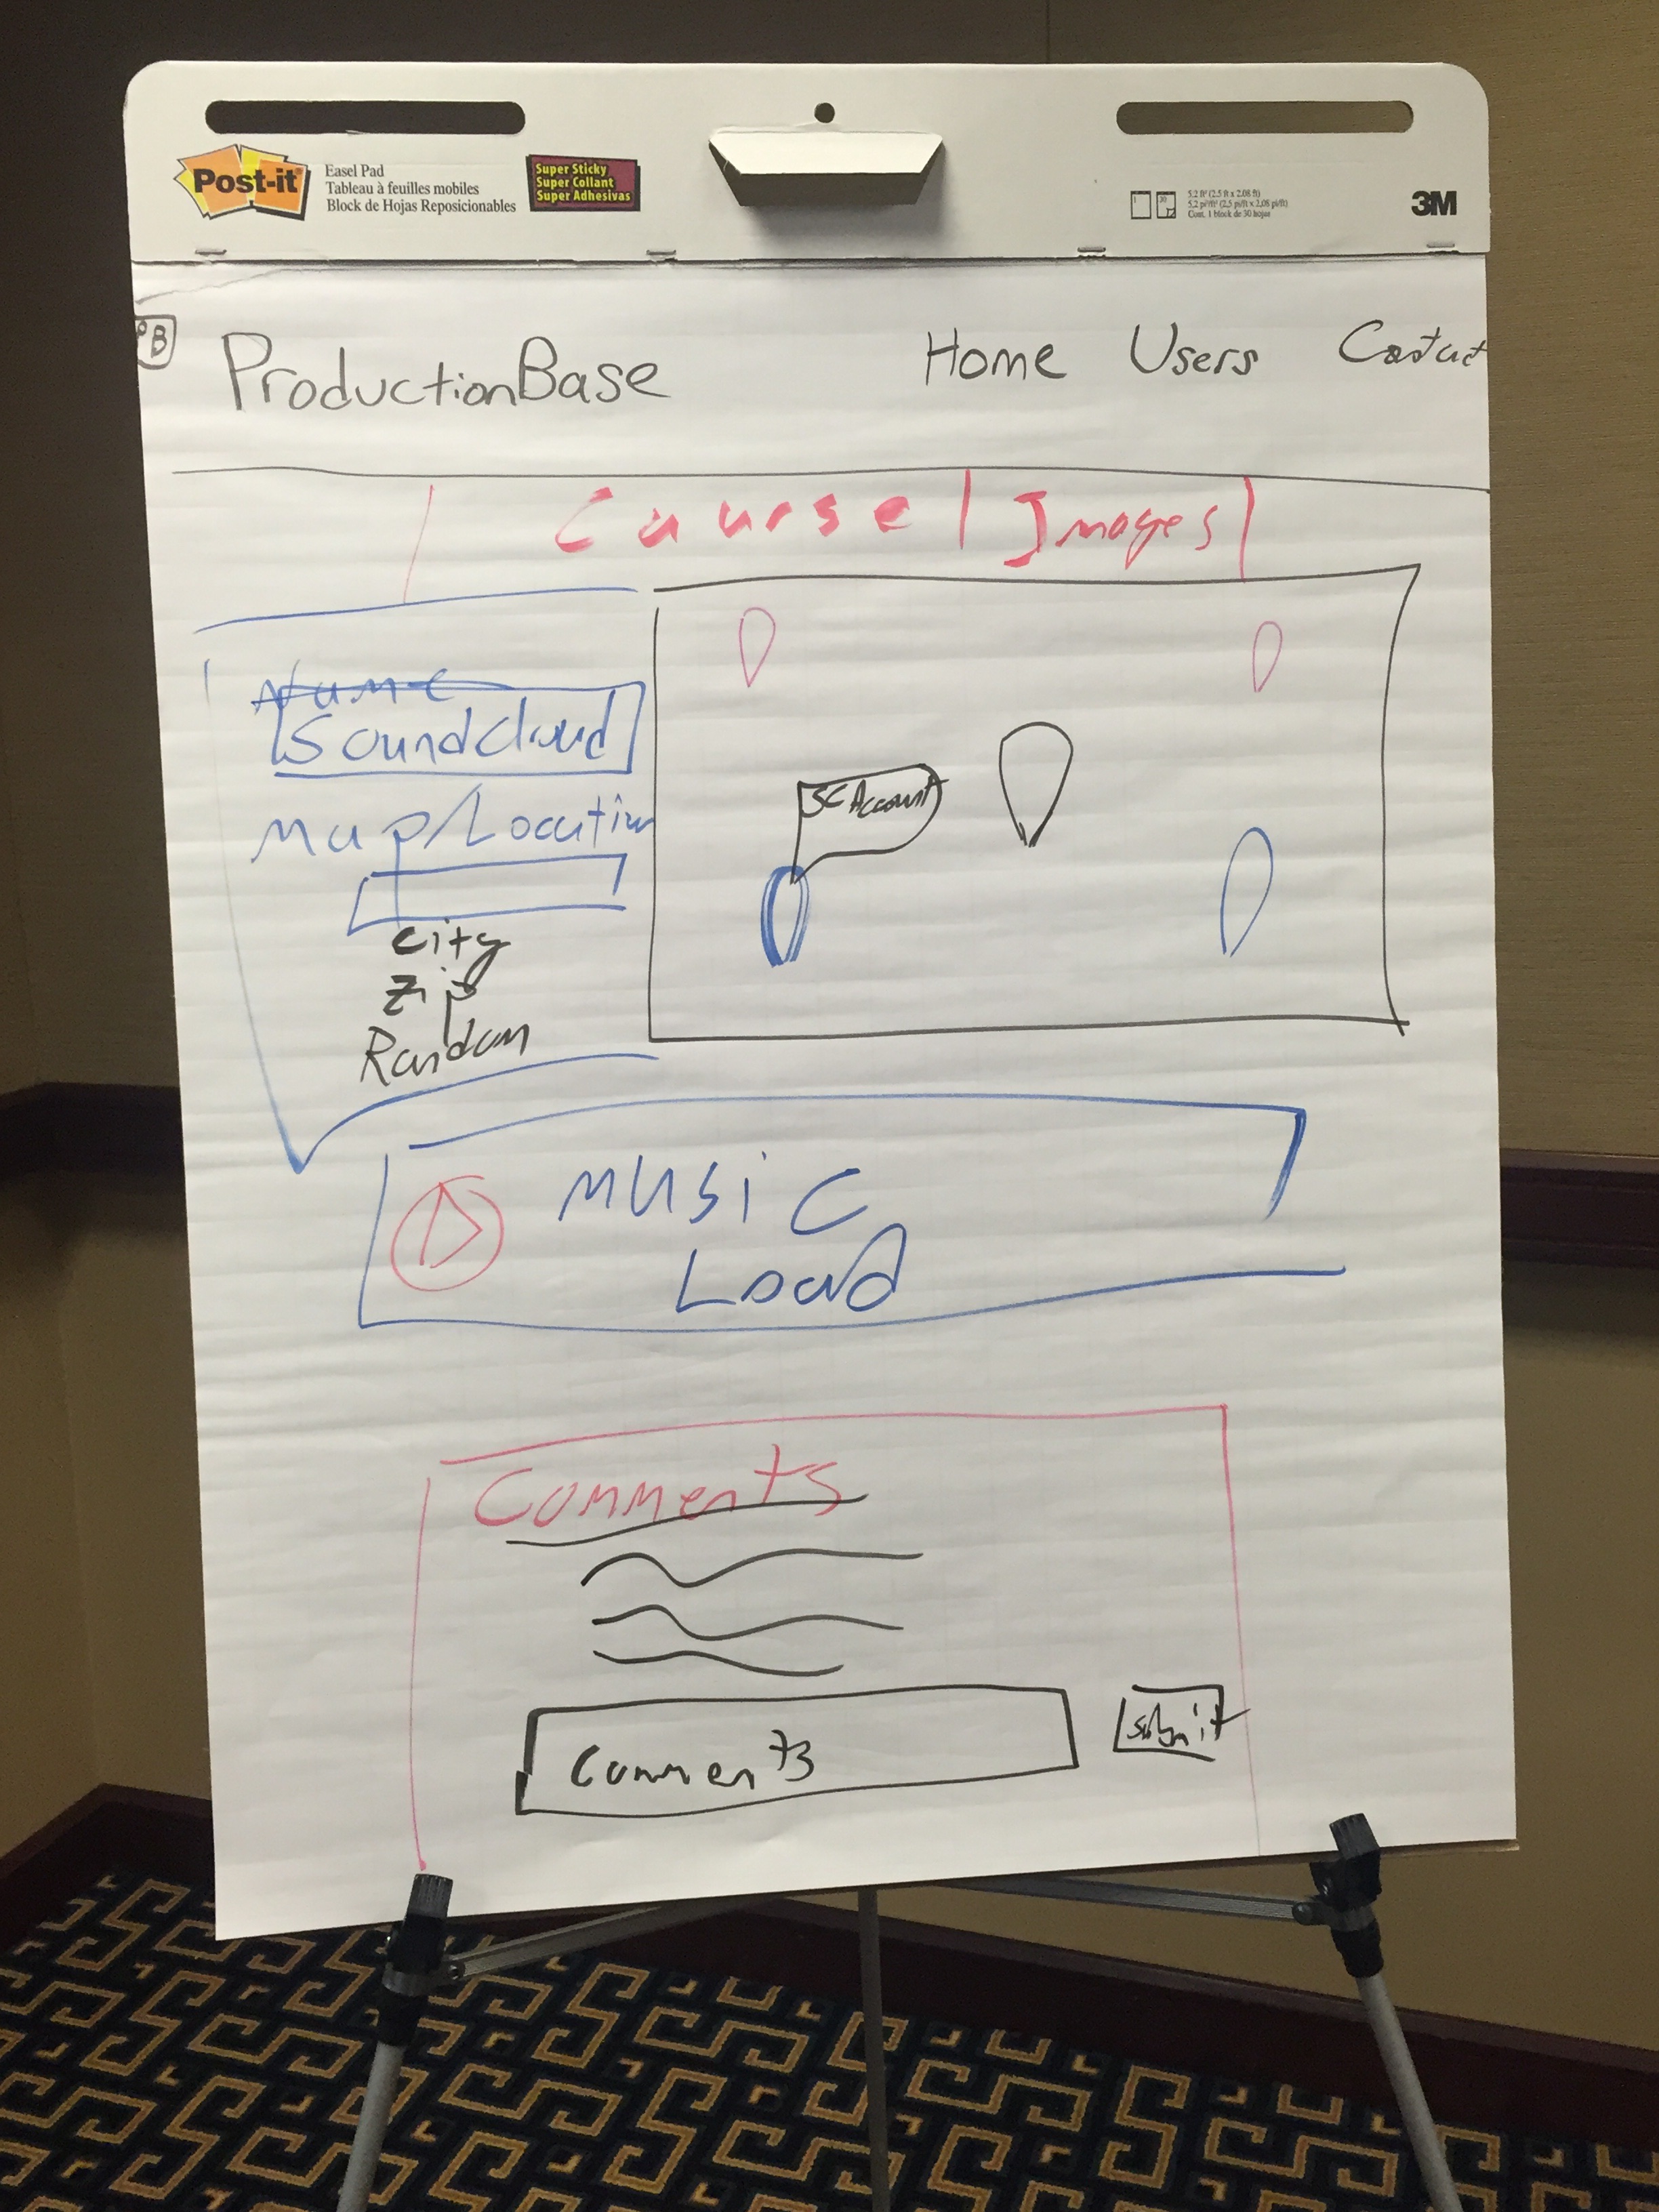 Post-it®
Easel Pad
Tableau à feuilles mobiles
Block de Hojas Reposicionables
Super Sticky
Super Collant
Super Adhesivas
5,2 ft² (2.5 ft x 2.08 ft)
5,2 pi²/ft² (2,5 pi/ft x 2,08 pi/ft)
Cont. 1 block de 30 hojas
3M
PB ProductionBase Home Users Contact
Caurse | Images |
Name
SoundCloud
Map/Location
SC Account
City
Zip
Random
Music
Load
Comments
Comments
Submit